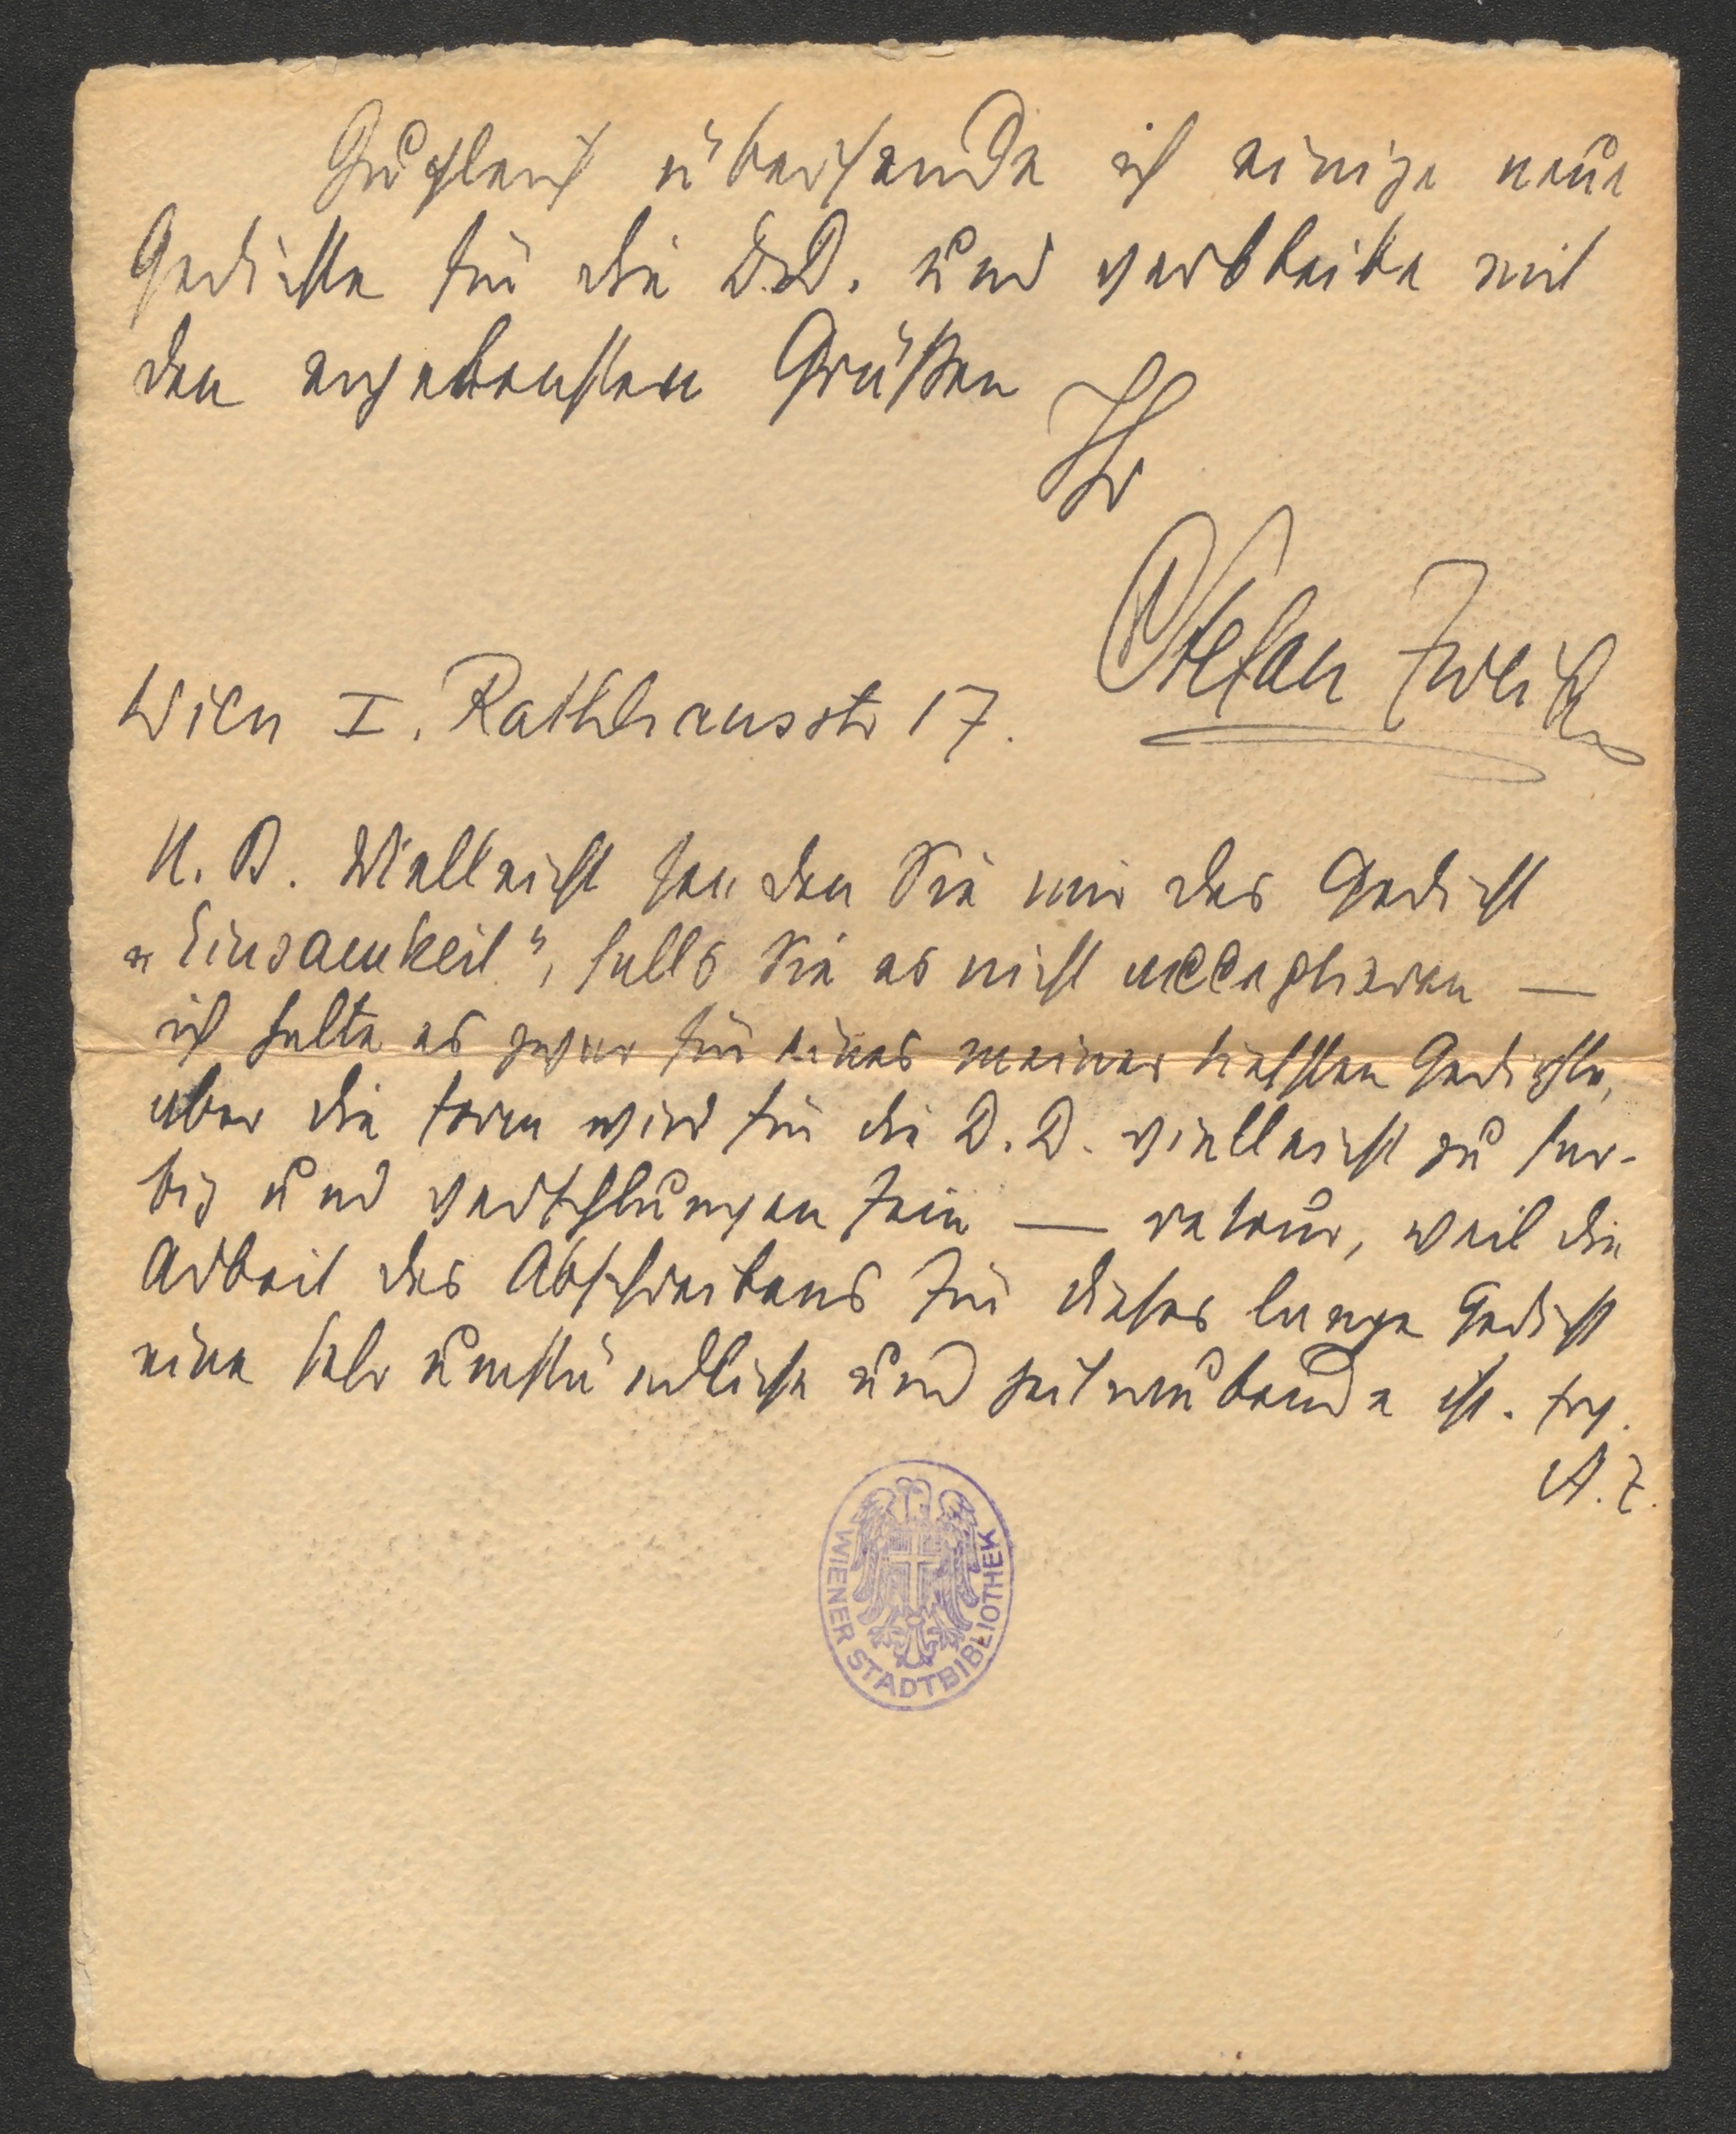 Zugleich übersende ich einige neue
Gedichte für die D.D. und verbleibe mit
den ergebensten Grüßen
Ihr
Stefan Zweig
Wien I. Rathhausstr 17.
N. B. Vielleicht senden Sie mir das Gedicht
„Einsamkeit", falls Sie es nicht acceptieren —
ich halte es zwar für eines meiner tiefsten Gedichte,
aber die Form wird für die D.D. vielleicht zu far-
big und verschlungen sein — retour, weil die
Arbeit des Abschreibens für dieses lange Gedicht
eine sehr umständliche und zeitraubende ist.
WIENER STADTBIBLIOTHEK